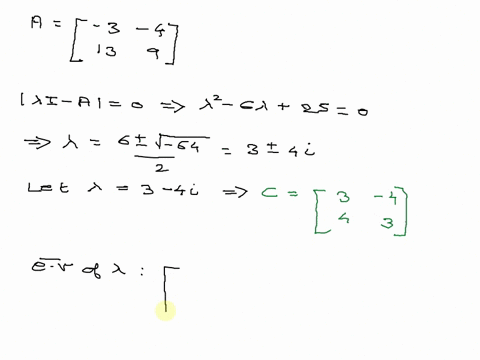 A = [ -3 -4
13 9 ]
|λI - A| = 0 ⟹ λ² - 6λ + 25 = 0
⟹ λ = (6 ± √-64)/2 = 3 ± 4i
Let λ = 3 - 4i ⟹ C = [ 3 -4
4 3 ]
e.v of λ : [